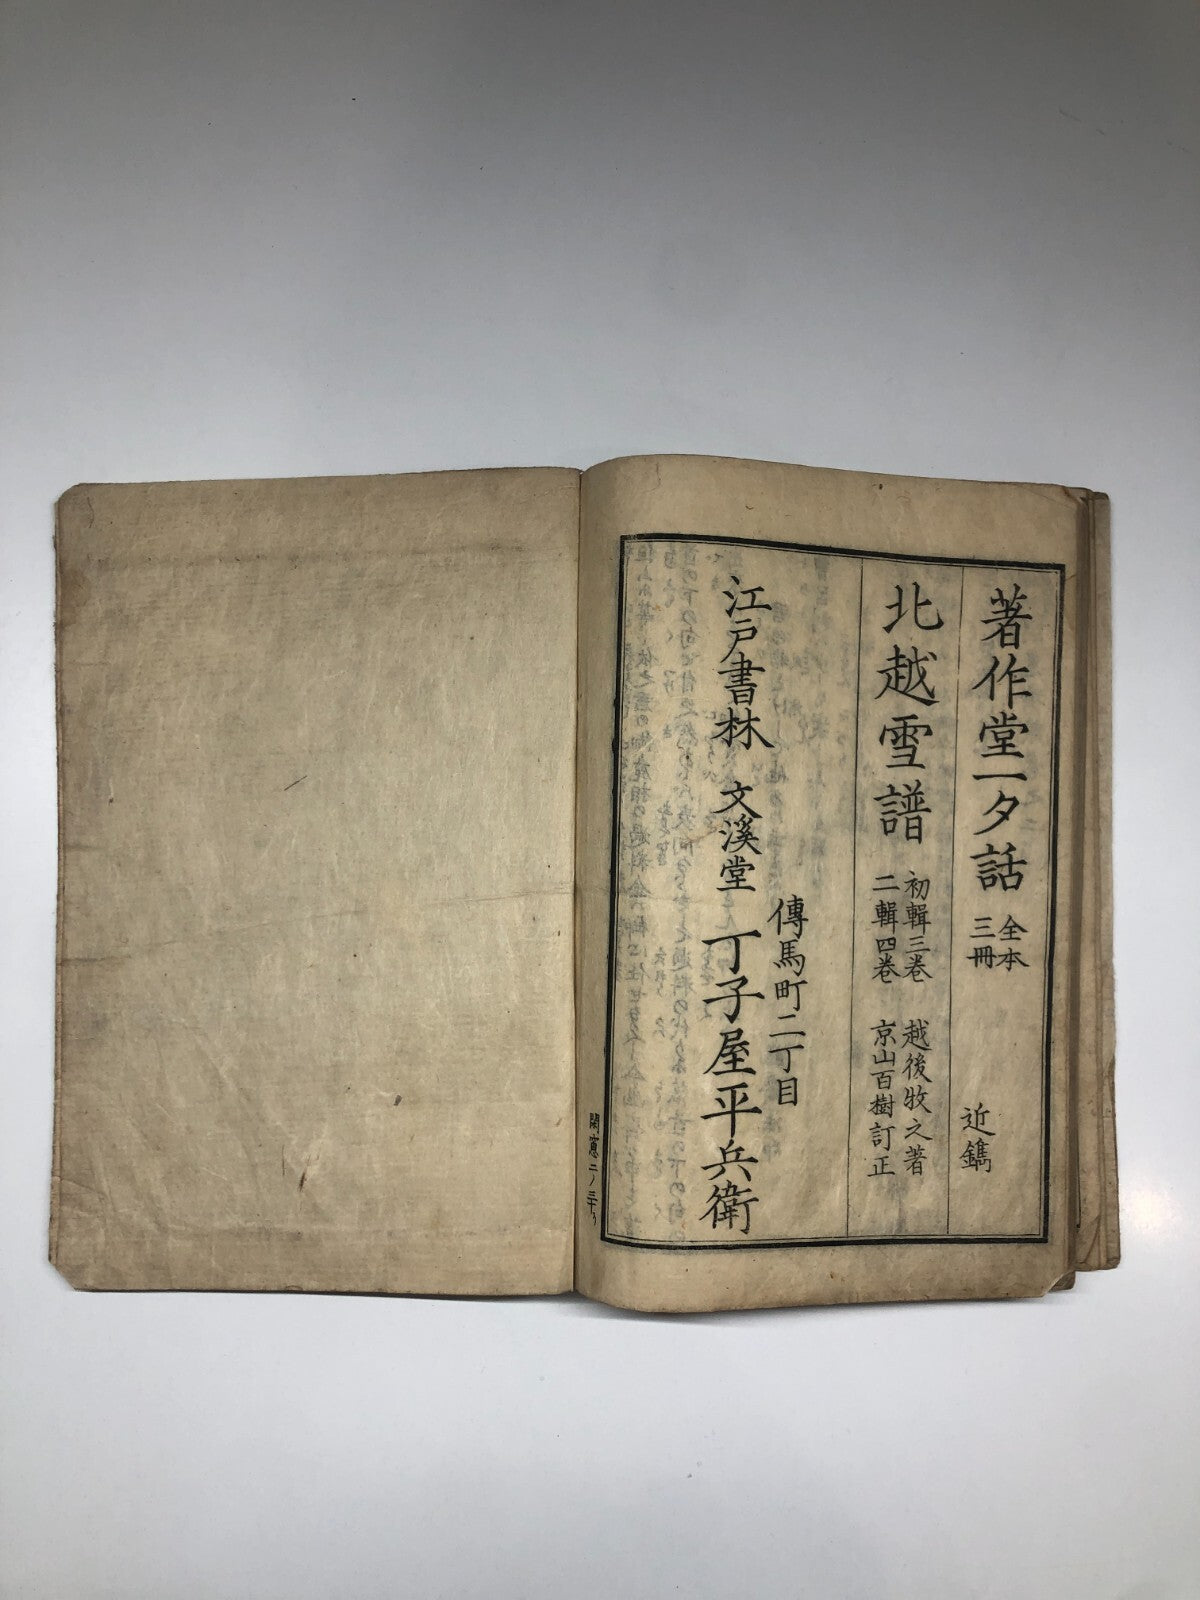 著作堂一夕話
全本
三冊
近鐫
北越雪譜
初輯三巻
二輯四巻
越後牧之著
京山百樹訂正
傳馬町二丁目
江戸書林 文溪堂 丁子屋平兵衛